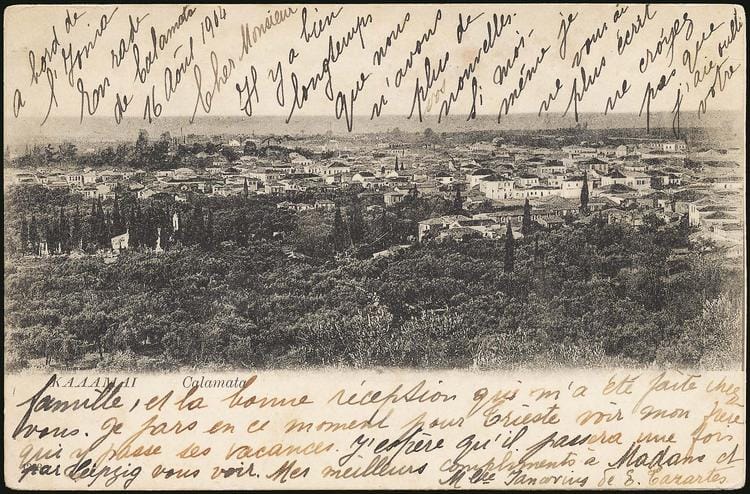 à bord de
l'Ionia
En rade
de Calamata
16 Août 1904
Cher Monsieur
Il y a bien
longtemps
que nous
n'avons
plus de
vos
nouvelles.
Si moi-
même je
ne vous ai
plus écrit
ne croyez
pas que
j'aie oublié
votre
ΚΑΛΑΜΑΙ Calamata
famille, et la bonne réception qui m'a été faite chez
vous. Je pars en ce moment pour Trieste voir mon frère
qui y passe ses vacances. J'espère qu'il passera une fois
par Leipzig vous voir. Mes meilleurs compliments à Madame et
Mlle de S. Cazartes